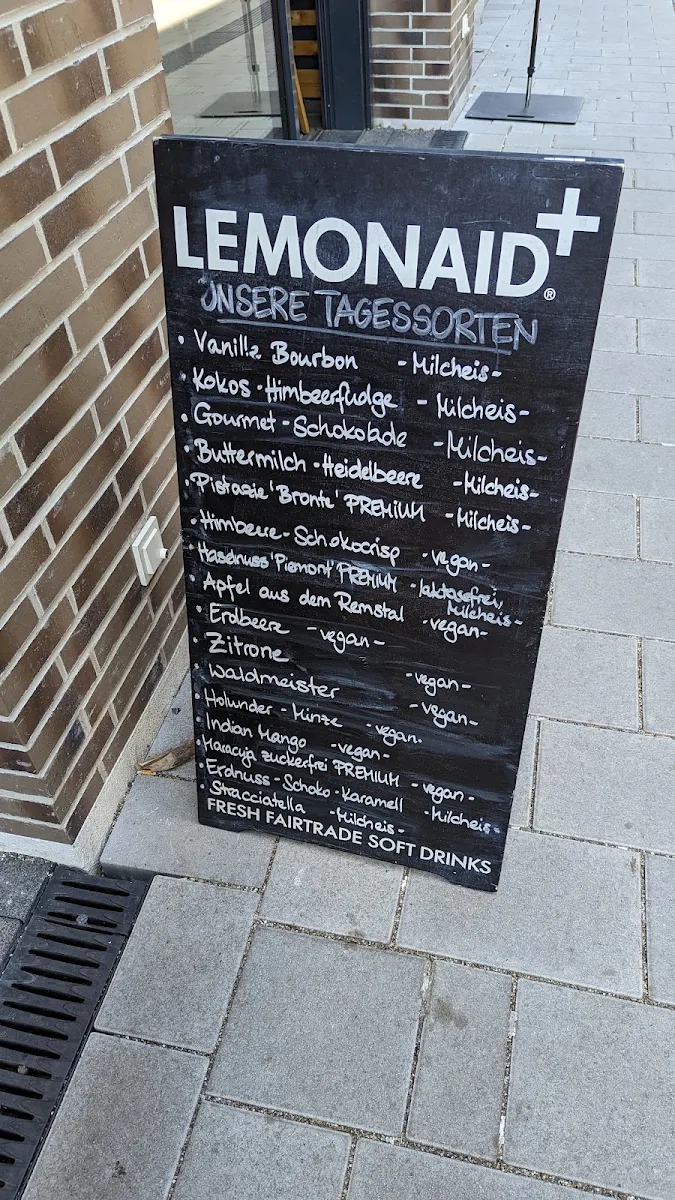 LEMONAID+®
UNSERE TAGESSORTEN
• Vanille Bourbon - Milcheis -
• Kokos - Himbeerfudge - Milcheis -
• Gourmet - Schokolade - Milcheis -
• Buttermilch - Heidelbeere - Milcheis -
• Pistazie 'Bronte' PREMIUM - Milcheis -
• Himbeere - Schokocrisp - vegan -
• Haselnuss 'Piemont' PREMIUM - laktosefrei, Milcheis -
• Apfel aus dem Remstal - vegan -
• Erdbeere - vegan -
• Zitrone - vegan -
• Waldmeister - vegan -
• Holunder - Minze - vegan -
• Indian Mango - vegan -
• Maracuja zuckerfrei PREMIUM - vegan -
• Erdnuss - Schoko - Karamell - Milcheis -
• Stracciatella - Milcheis -
FRESH FAIRTRADE SOFT DRINKS